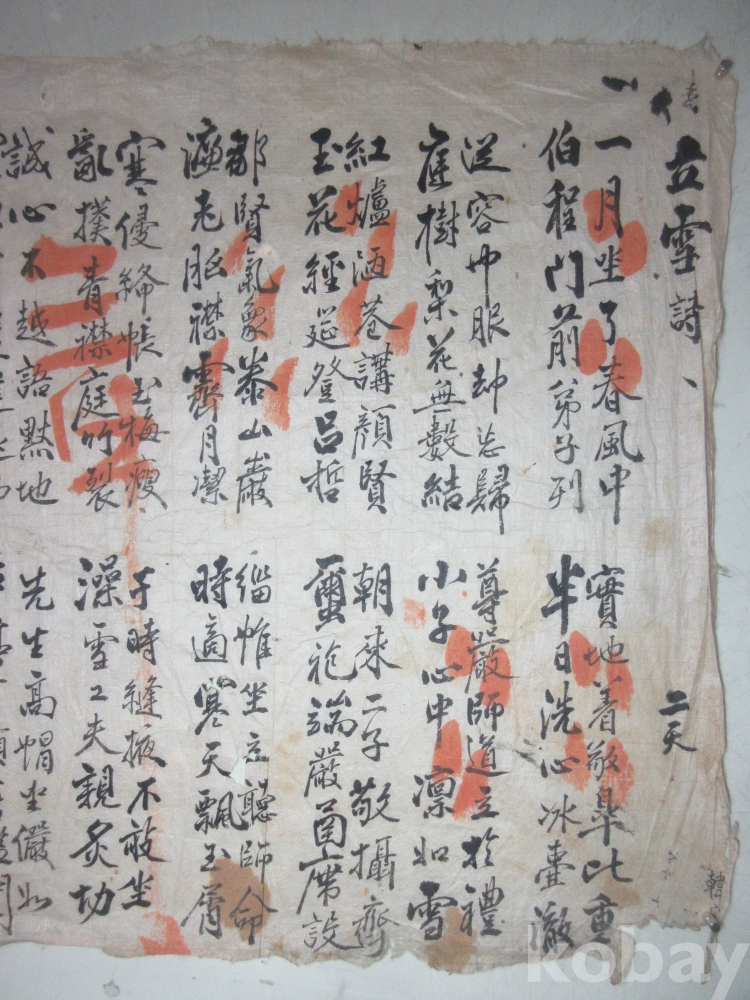 立雪詩、 二天
一月坐了春風中 實地着敬皐比重
伯程門前弟子列 半日洗沁冰壺澈
從容中服却忘歸 尊嚴師道立於禮
崔樹梨花無數結 小子心中凜如雪
紅爐酒巷講顔賢 朝來二子敬攝齊
玉花經筵登呂哲 袍端嚴函席設
邵賢氣象泰山巖 緇帷坐立聽師命
濂老胚襟霽月潔 時適寒天飄玉屑
寒侵絳帳玉梅瘦 于時縫掖不敢坐
亂撲青襟庭竹裂 澡雪工夫親炙切
誠心不越語默地 先生高帽坐儼如
kobay